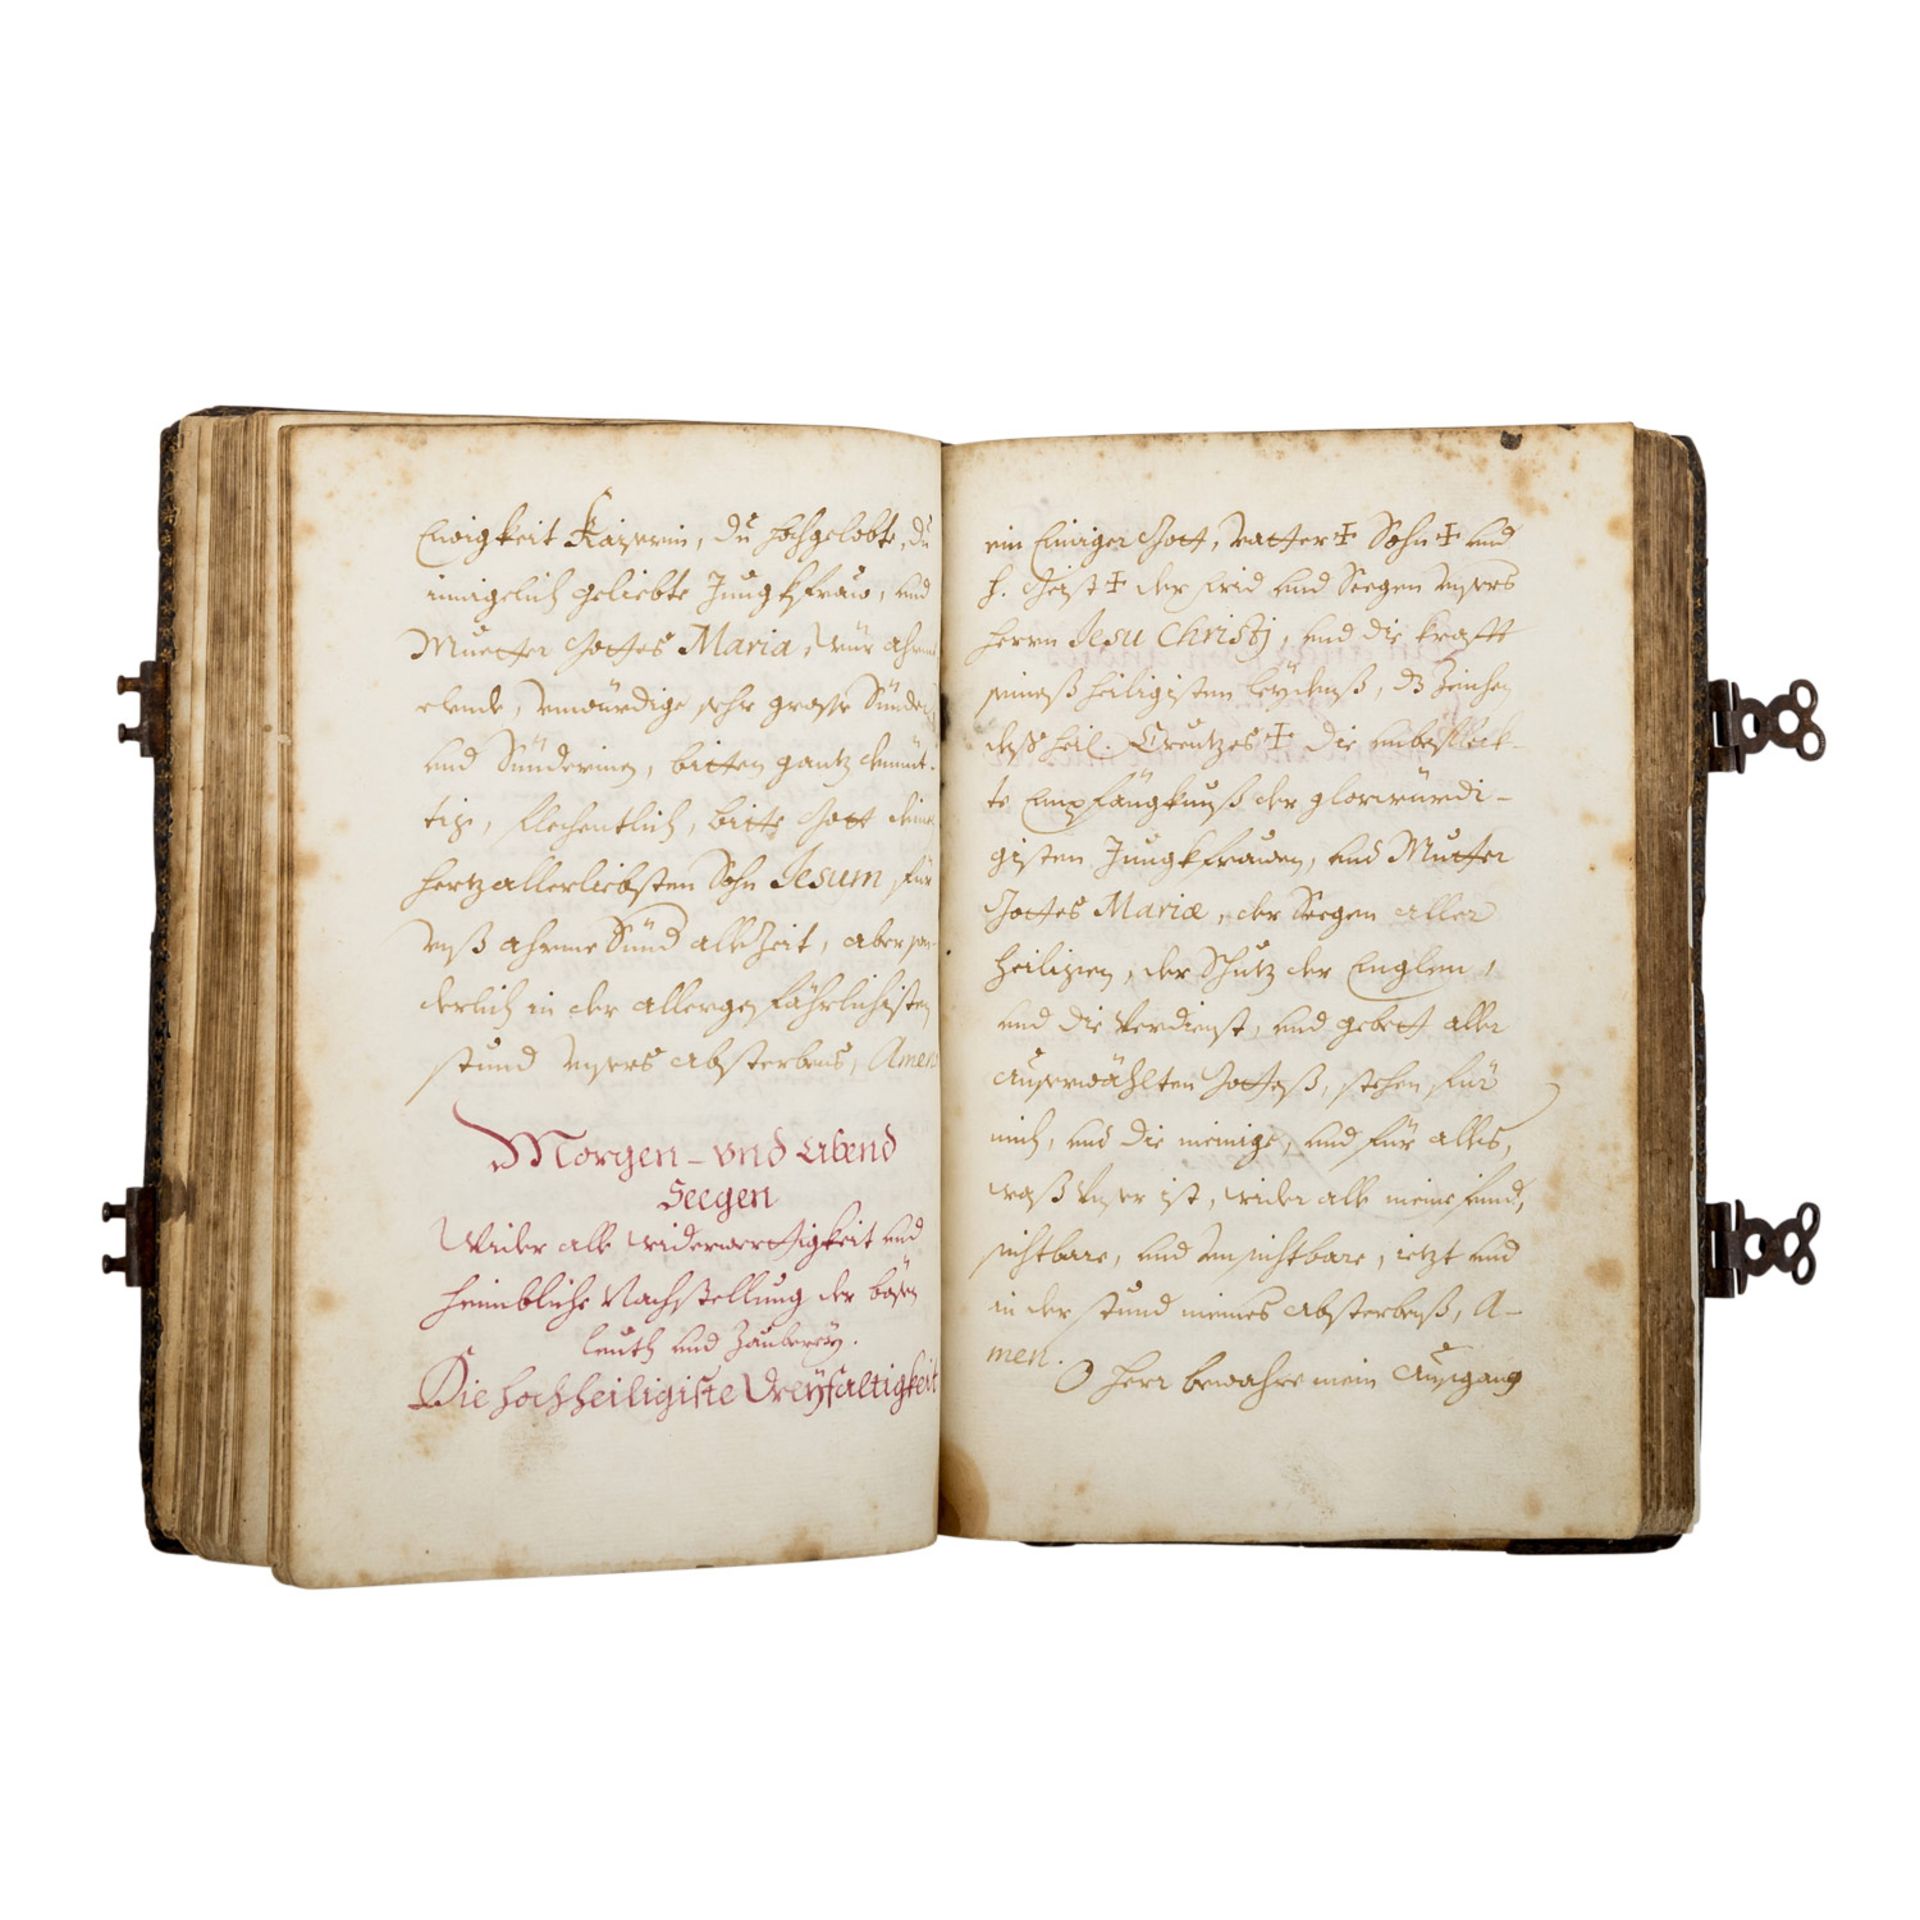 Ewigkeit Kaÿserin, du hochgelobte, du
innigelich geliebte Jungkfraw, und
Muetter Gottes Maria, Wür ahrme
elende, unwürdige sehr grosse Sünder,
und Sünderinen, bitten gantz demüt-
tig, flechentlich, bitte Gott deinen
hertzallerliebsten Sohn Jesum für
unß ahrme Sünd allezeit, aber son-
derlich in der allergefährlichisten
stund unsers absterbens, Amen
Morgen- und Abend
Seegen
Wider alle widerwerttigkeit und
heimbliche Nachstellung der bösen
leuth und Zauberey.
Die hochheiligiste Dreÿfaltigkeit
ein Einiger Gott, Vatter ✠ Sohn ✠ und
H. Geist ✠ der frid und Seegen unsers
Herrn Jesu Christj, und die krafft
seineß heiligisten leÿdenß, dz Zeichen
deß heil. Creutzes ✠ die unbefleck-
te Empfängknuß der glorwürdi-
gisten Jungkfrawen, und Mutter
Gottes Mariæ, der Seegen aller
Heiligen, der Schutz der Englen,
und die Verdienst, und gebett aller
Auserwählten Gotteß, stehen für
mich, und die meinige, und für alles,
waß unser ist, wider alle meine feind,
sichtbare, und unsichtbare, ietzt und
in der stund meines absterbenß, A-
men.
O Herr bewahre mein Ausgang